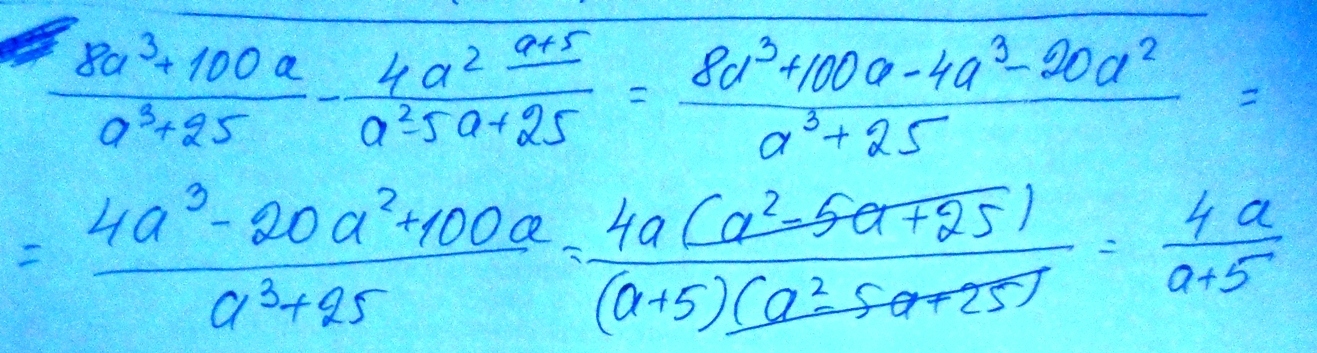 \frac{8a^3+100a}{a^3+25} - \frac{4a^2}{a^2-5a+25}^{a+5} = \frac{8a^3+100a-4a^3-20a^2}{a^3+25} =
= \frac{4a^3-20a^2+100a}{a^3+25} = \frac{4a(a^2-5a+25)}{(a+5)(a^2-5a+25)} = \frac{4a}{a+5}